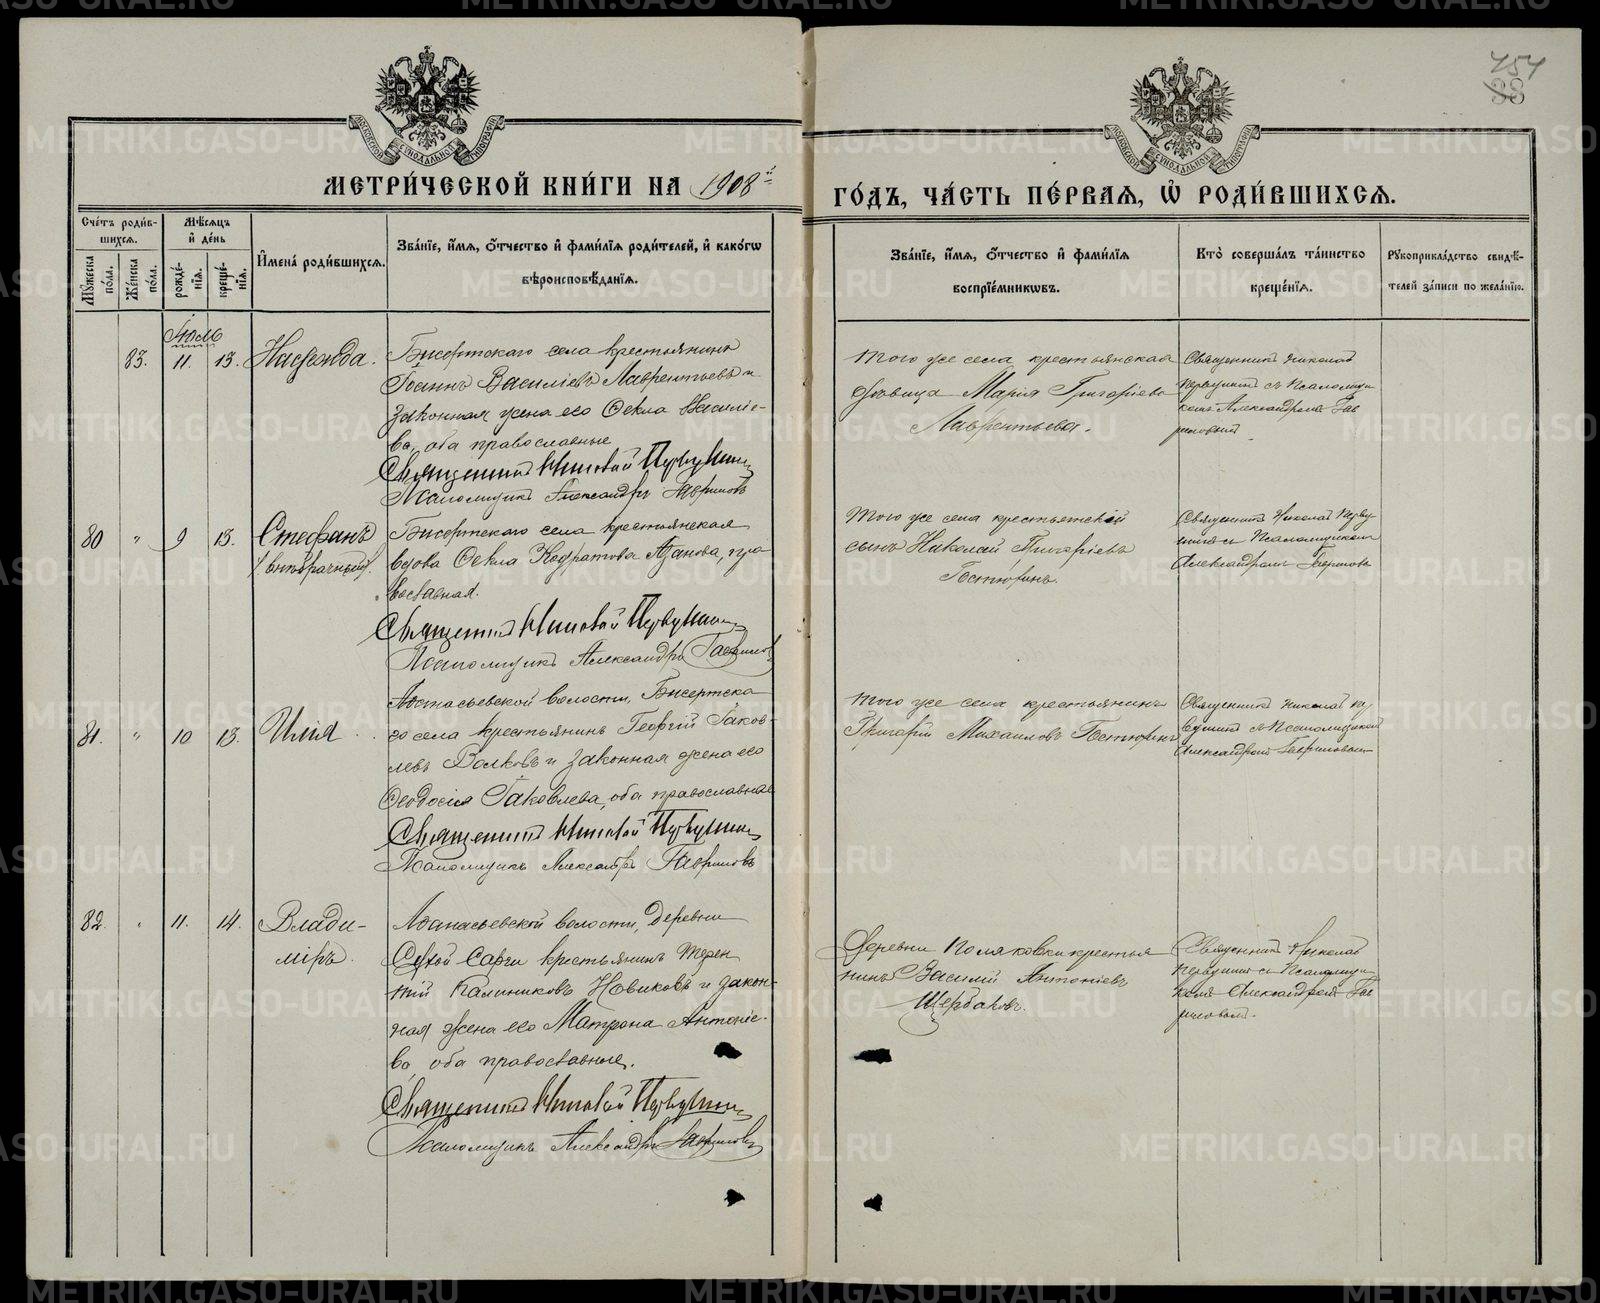 454
38
МОСКОВСКОЙ СУНОДАЛЬНОЙ ТИПОГРАФІИ
МОСКОВСКОЙ СУНОДАЛЬНОЙ ТИПОГРАФІИ
МЕТРИ́ЧЕСКОЙ КНИ́ГИ НА 1908й
ГО́ДЪ, ЧА́СТЬ ПЕ́РВАЯ, Ѽ РОДИ́ВШИХСЯ.
Сче́тъ роди́в-
шихся.
Мѣ́сяцъ
и҆ де́нь
Му́жеска по́ла.
Же́нска по́ла.
рожде́-
нїя.
креще́-
нїя.
И҆мена̀ роди́вшихся.
Зва́нїе, и҆́мя, ѻ҆́тчество и҆ фами́лїя роди́телей, и҆ како́гѡ
вѣроисповѣ́данїя.
Зва́нїе, и҆́мя, ѻ҆́тчество и҆ фами́лїя
воспрїе́мникѡвъ.
Кто̀ соверша́лъ та́инство
креще́нїя.
Рꙋкоприкла́дство свидѣ́-
телей за́писи по жела́нїю.
Іюль
83. 11. 13. Надежда.
Бисертскаго села крестьянинъ
Іоаннъ Василіевъ Лаврентьевъ и
законная жена его Ѳекла Василіе-
ва, оба православные
Священникъ Николай Первушинъ
Псаломщикъ Александръ Гавриловъ
Того же села крестьянская
дѣвица Марія Григоріева
Лаврентьева.
Священникъ Николай
Первушинъ съ Псаломщи-
комъ Александромъ Гав
риловымъ
80 " 9 13. Стефанъ
/внѣбрачный/.
Бисертскаго села крестьянская
вдова Ѳекла Кодратова Азанова, пра
вославная.
Священникъ Николай Первушинъ
Псаломщикъ Александръ Гавриловъ
Того же села крестьянскій
сынъ Николай Григоріевъ
Гостюхинъ.
Священникъ Николай Перву
шинъ съ Псаломщикомъ
Александромъ Гавриловы
81. " 10 13. Илія
Аѳанасьевской волости, Бисертска
го села крестьянинъ Георгій Іаков-
левъ Волковъ и законная жена его
Ѳеодосія Іаковлева, оба православные
Священникъ Николай Первушинъ
Псаломщикъ Александръ Гавриловъ
Того же села крестьянинъ
Григорій Михаиловъ Гостюхинъ
Священникъ Николай Пер
вушинъ съ Псаломщикомъ
Александромъ Гавриловымъ
82. " 11. 14. Влади-
міръ.
Аѳанасьевской волости, деревни
Сухой Сарги крестьянинъ Терен
тій Калиниковъ Новиковъ и закон-
ная жена его Матрона Антоніе-
ва, оба православные.
Священникъ Николай Первушинъ
Псаломщикъ Александръ Гавриловъ
Деревни Поляковки крестья
нинъ Василій Антоніевъ
Щербаковъ.
Священникъ Николай
Первушинъ съ Псаломщи-
комъ Александромъ Гав
риловымъ.
METRIKI.GASO-URAL.RU